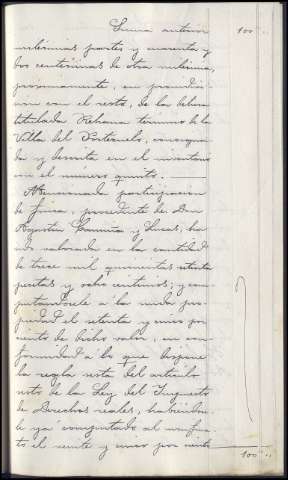 Suma anterior 100"..
milésimas partes y cuarenta y
dos centésimas de otra milésima,
proindiviso
con con el resto, de la dehesa
titulada término de la
Villa del Portezuelo,
da y descrita en el inventario
con el número quinto.
Mencionada participación
de finca, procedente de Don
Agustín y Lucas, ha
sido valorada en la cantidad
de trece mil quinientas setenta
pesetas y ocho céntimos; y com
putándosele a la nuda pro
piedad el setenta y cinco por
ciento de dicho valor, en con
formidad a lo que dispone
la regla sexta del artículo
de la Ley del Impuesto
de Derechos reales, habiéndo
le ya computado al usufruc
to el veinte y cinco por ciento
100"..